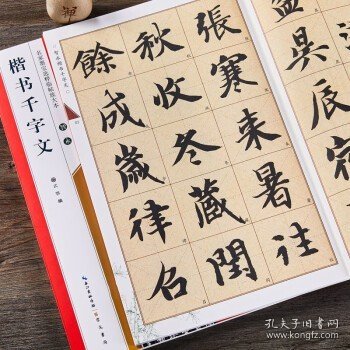 盈昃辰宿
張寒來暑往
秋收冬藏閏
餘成歲律呂
楷书千字文
孔夫子旧书网